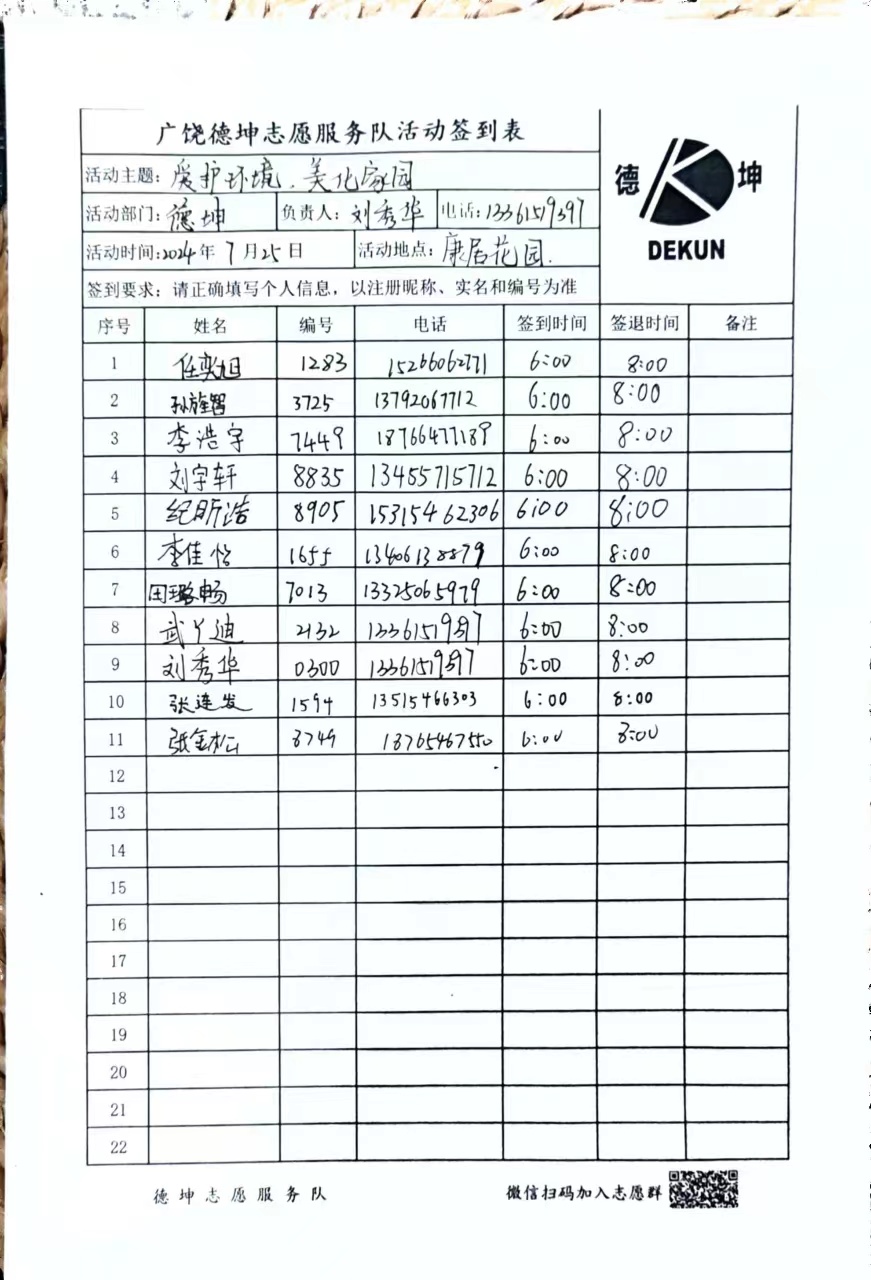 广饶德坤志愿服务队活动签到表
德 坤
DEKUN
活动主题：爱护环境、美化家园
活动部门：德坤 负责人：刘秀华 电话：13361519397
活动时间：2024年 7 月 25 日 活动地点：康居花园.
签到要求：请正确填写个人信息，以注册昵称、实名和编号为准
序号 姓名 编号 电话 签到时间 签退时间 备注
1 任奕旭 1283 15266062771 6:00 8:00
2 3725 13792067712 6:00 8:00
3 李浩宇 7449 18766477189 6:00 8:00
4 刘宇轩 8835 13455715712 6:00 8:00
5 纪昕浩 8905 15315462306 6:00 8:00
6 李佳怡 1655 13406138879 6:00 8:00
7 田璐畅 7013 13325065979 6:00 8:00
8 武丫迪 2132 13361519397 6:00 8:00
9 刘秀华 0300 13361519397 6:00 8:00
10 张连发 1594 13515466303 6:00 8:00
11 张金松 8749 18765467550 6:00 8:00
12
13
14
15
16
17
18
19
20
21
22
德坤志愿服务队 微信扫码加入志愿群